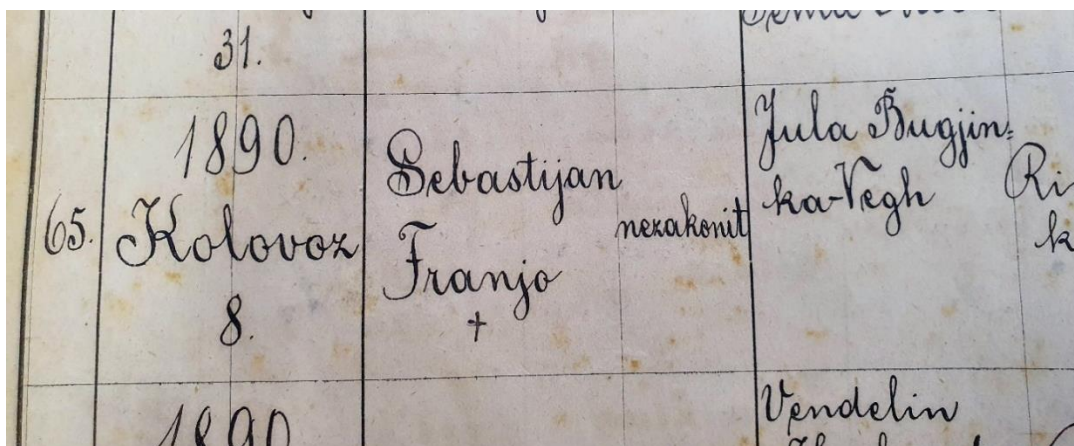 31.
65.
1890.
Kolovoz
8.
Sebastijan
Franjo
+
nezakonit
Jula Bugjin=
ka-Vegh
1890
Vendelin